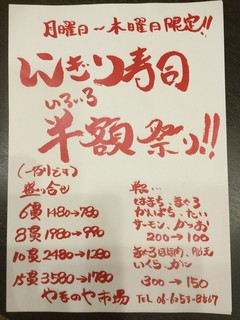 月曜日～木曜日限定!!
にぎり寿司
いろいろ
半額祭り!!
(一例です)
盛り合せ
6貫 1480→780
8貫 1980→990
10貫 2480→1280
15貫 3580→1780
やまのや市場
単品…
はまち、まぐろ
かんぱち、たい
サーモン、かつお
200→100
いくら、カニ
300→150
TEL 06-6253-8567